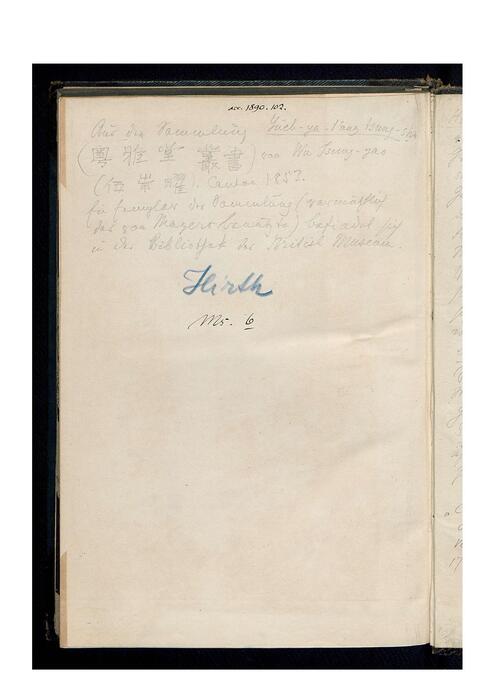 acc. 1890. 102.
Aus der Sammlung Yüeh-ya-t'ang tsung-shu
(粵雅堂叢書) von Wu Tsung-yao
(伍崇曜). Canton 1857.
Ein Exemplar der Sammlung (vermuthlich
das von Mayers benützte) befindet sich
in der Bibliothek des British Museum.
Hirth
Ms. 6